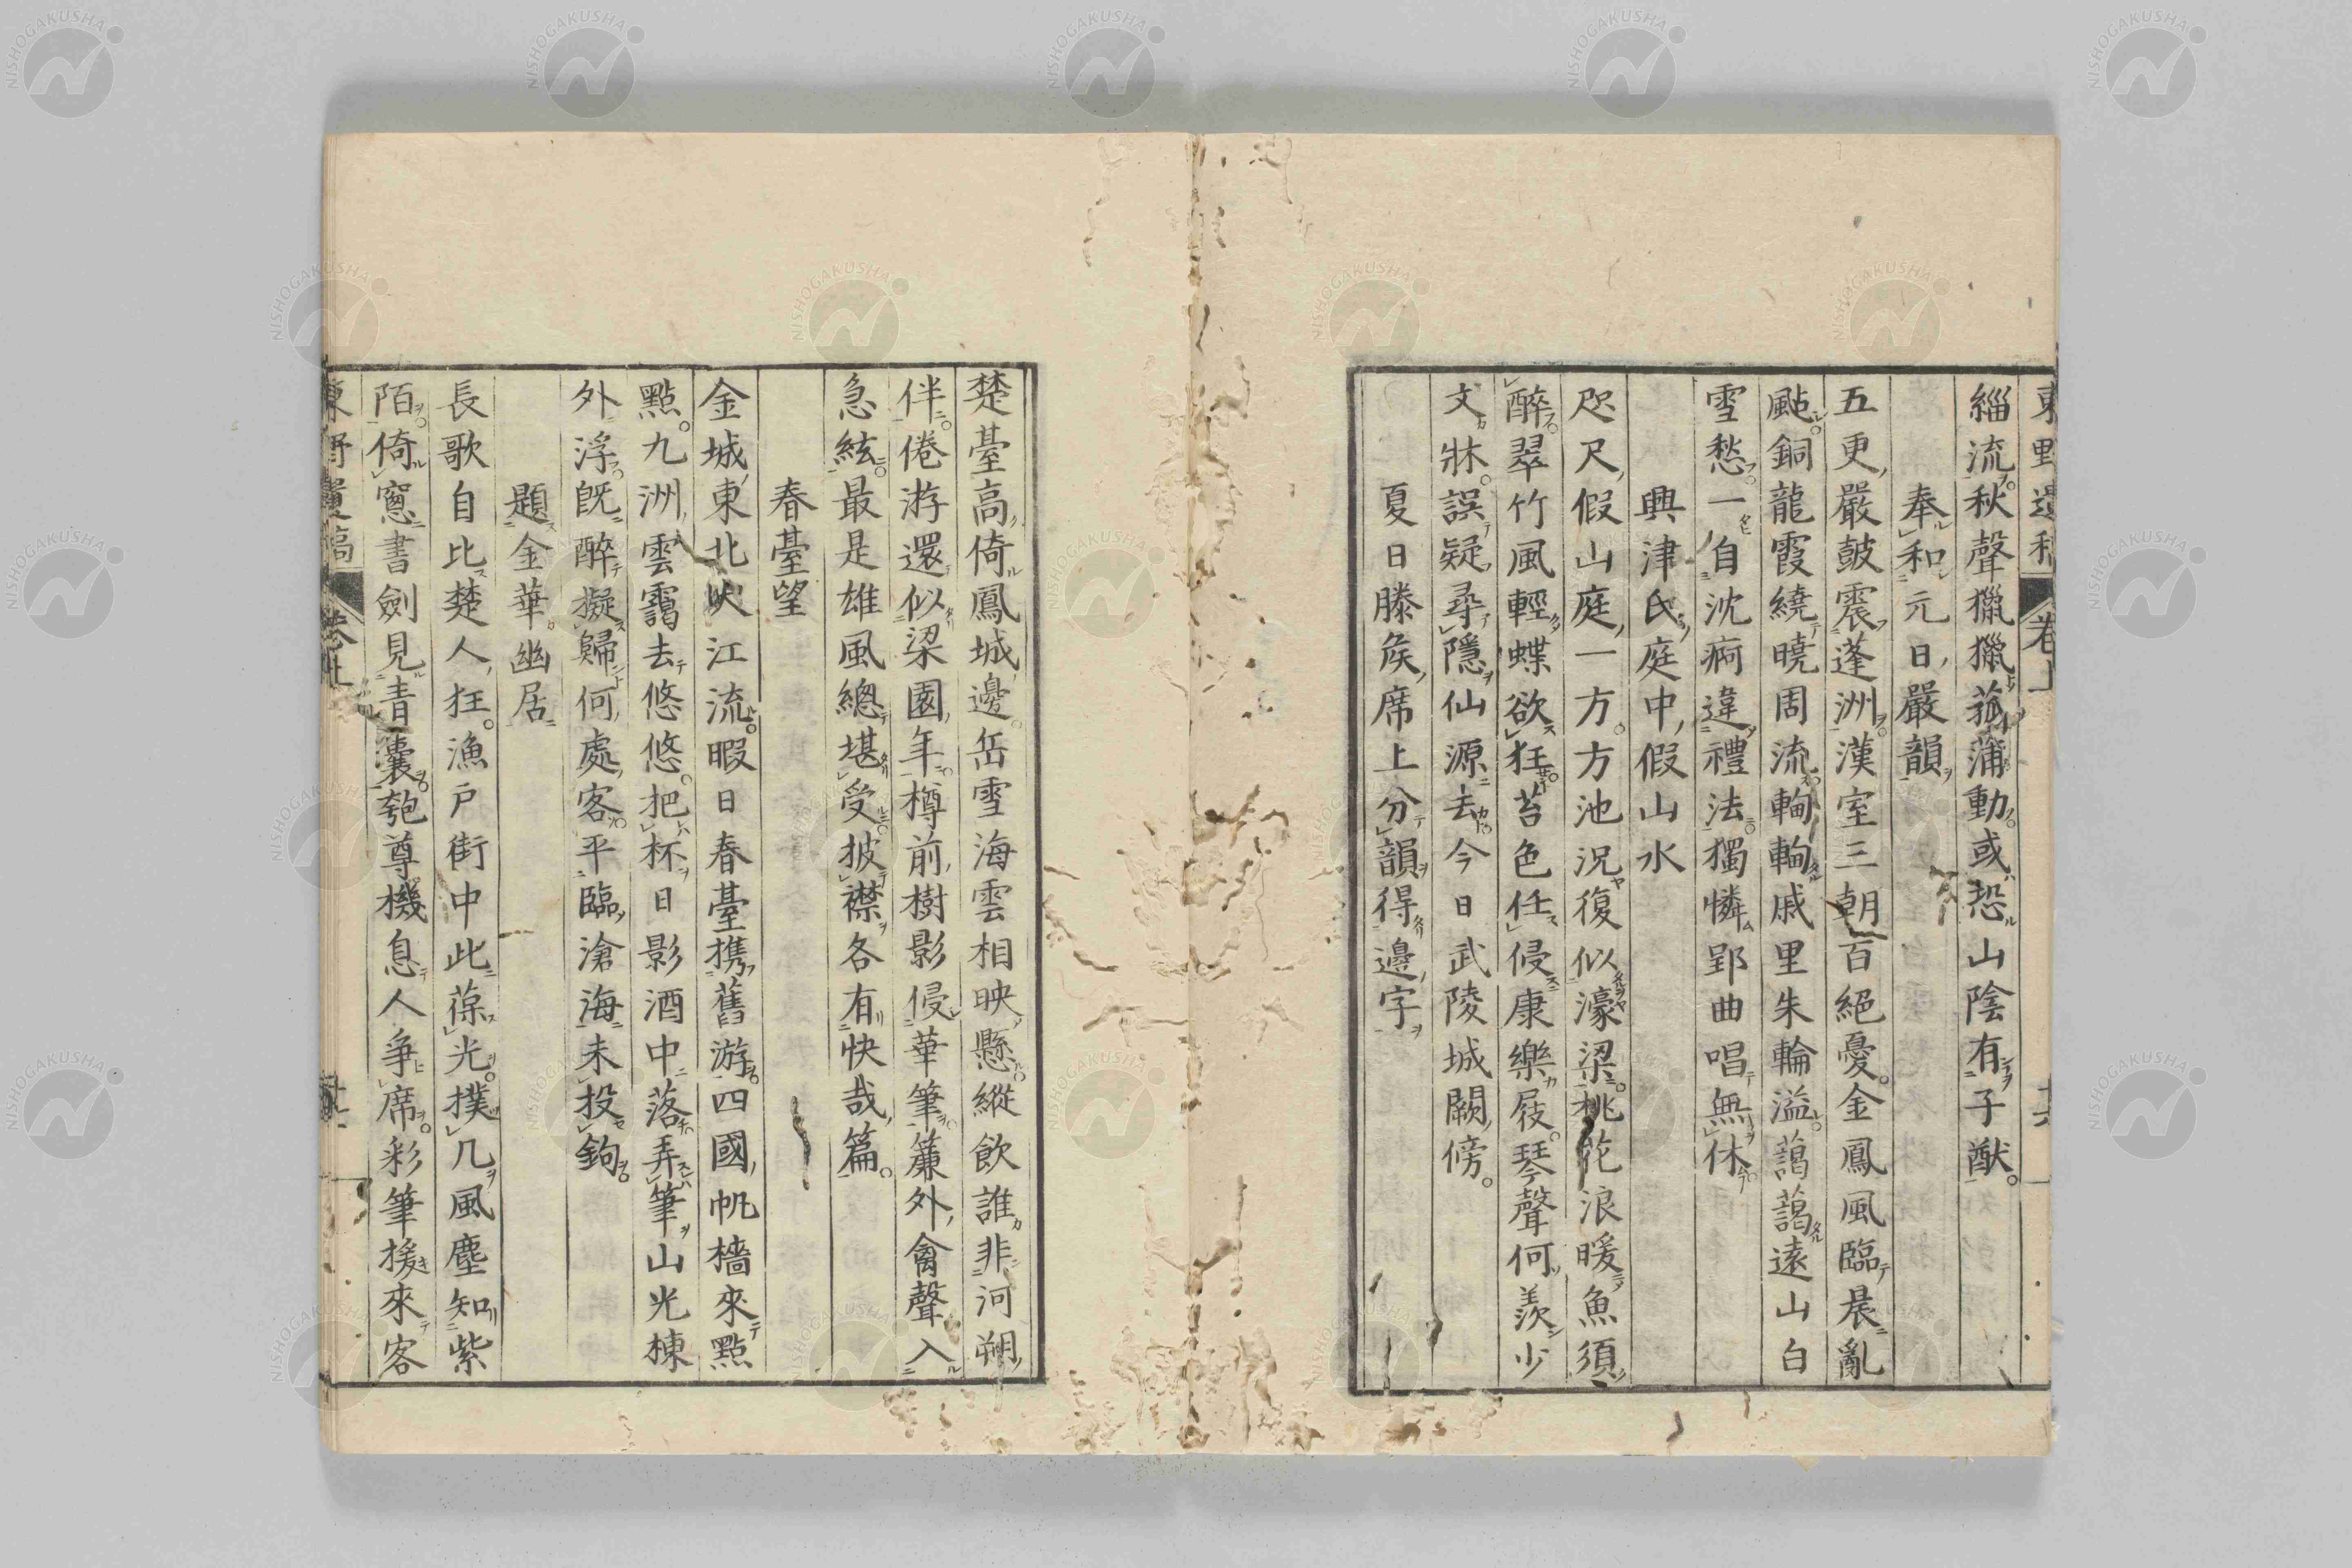 緇流秋聲獵獵菰蒲動或恐山陰有子猷
奉和元日嚴韻
五更嚴皷震蓬洲漢室三朝百絕憂金鳳風臨晨亂
颭銅龍霞繞曉周流輷輷戚里朱輪溢藹藹遠山白
雪愁一自沈痾違禮法獨憐郢曲唱無休
興津氏庭中假山水
咫尺假山庭一方方池況復似濠梁桃花浪暖魚須
醉翠竹風輕蝶欲狂苔色任侵康樂屐琴聲何羨少
文牀誤疑尋隱仙源去今日武陵城闕傍
夏日滕矦席上分韻得邊字
楚臺高倚鳳城邊岳雪海雲相映懸縱飲誰非河朔
伴倦游還似梁園年樽前樹影侵華筆簾外禽聲入
急絃最是雄風總堪受披襟各有快哉篇
春臺望
金城東北吹江流暇日春臺攜舊游四國帆檣來點
點九洲雲靄去悠悠把杯日影酒中落弄筆山光棟
外浮既醉擬歸何處客平臨滄海未投鉤
題金華幽居
長歌自比楚人狂漁戶街中此葆光撲几風塵知紫
陌倚窻書劍見青囊匏尊機息人爭席彩筆援來客
東野遺稿 卷上
NISHOGAKUSHA